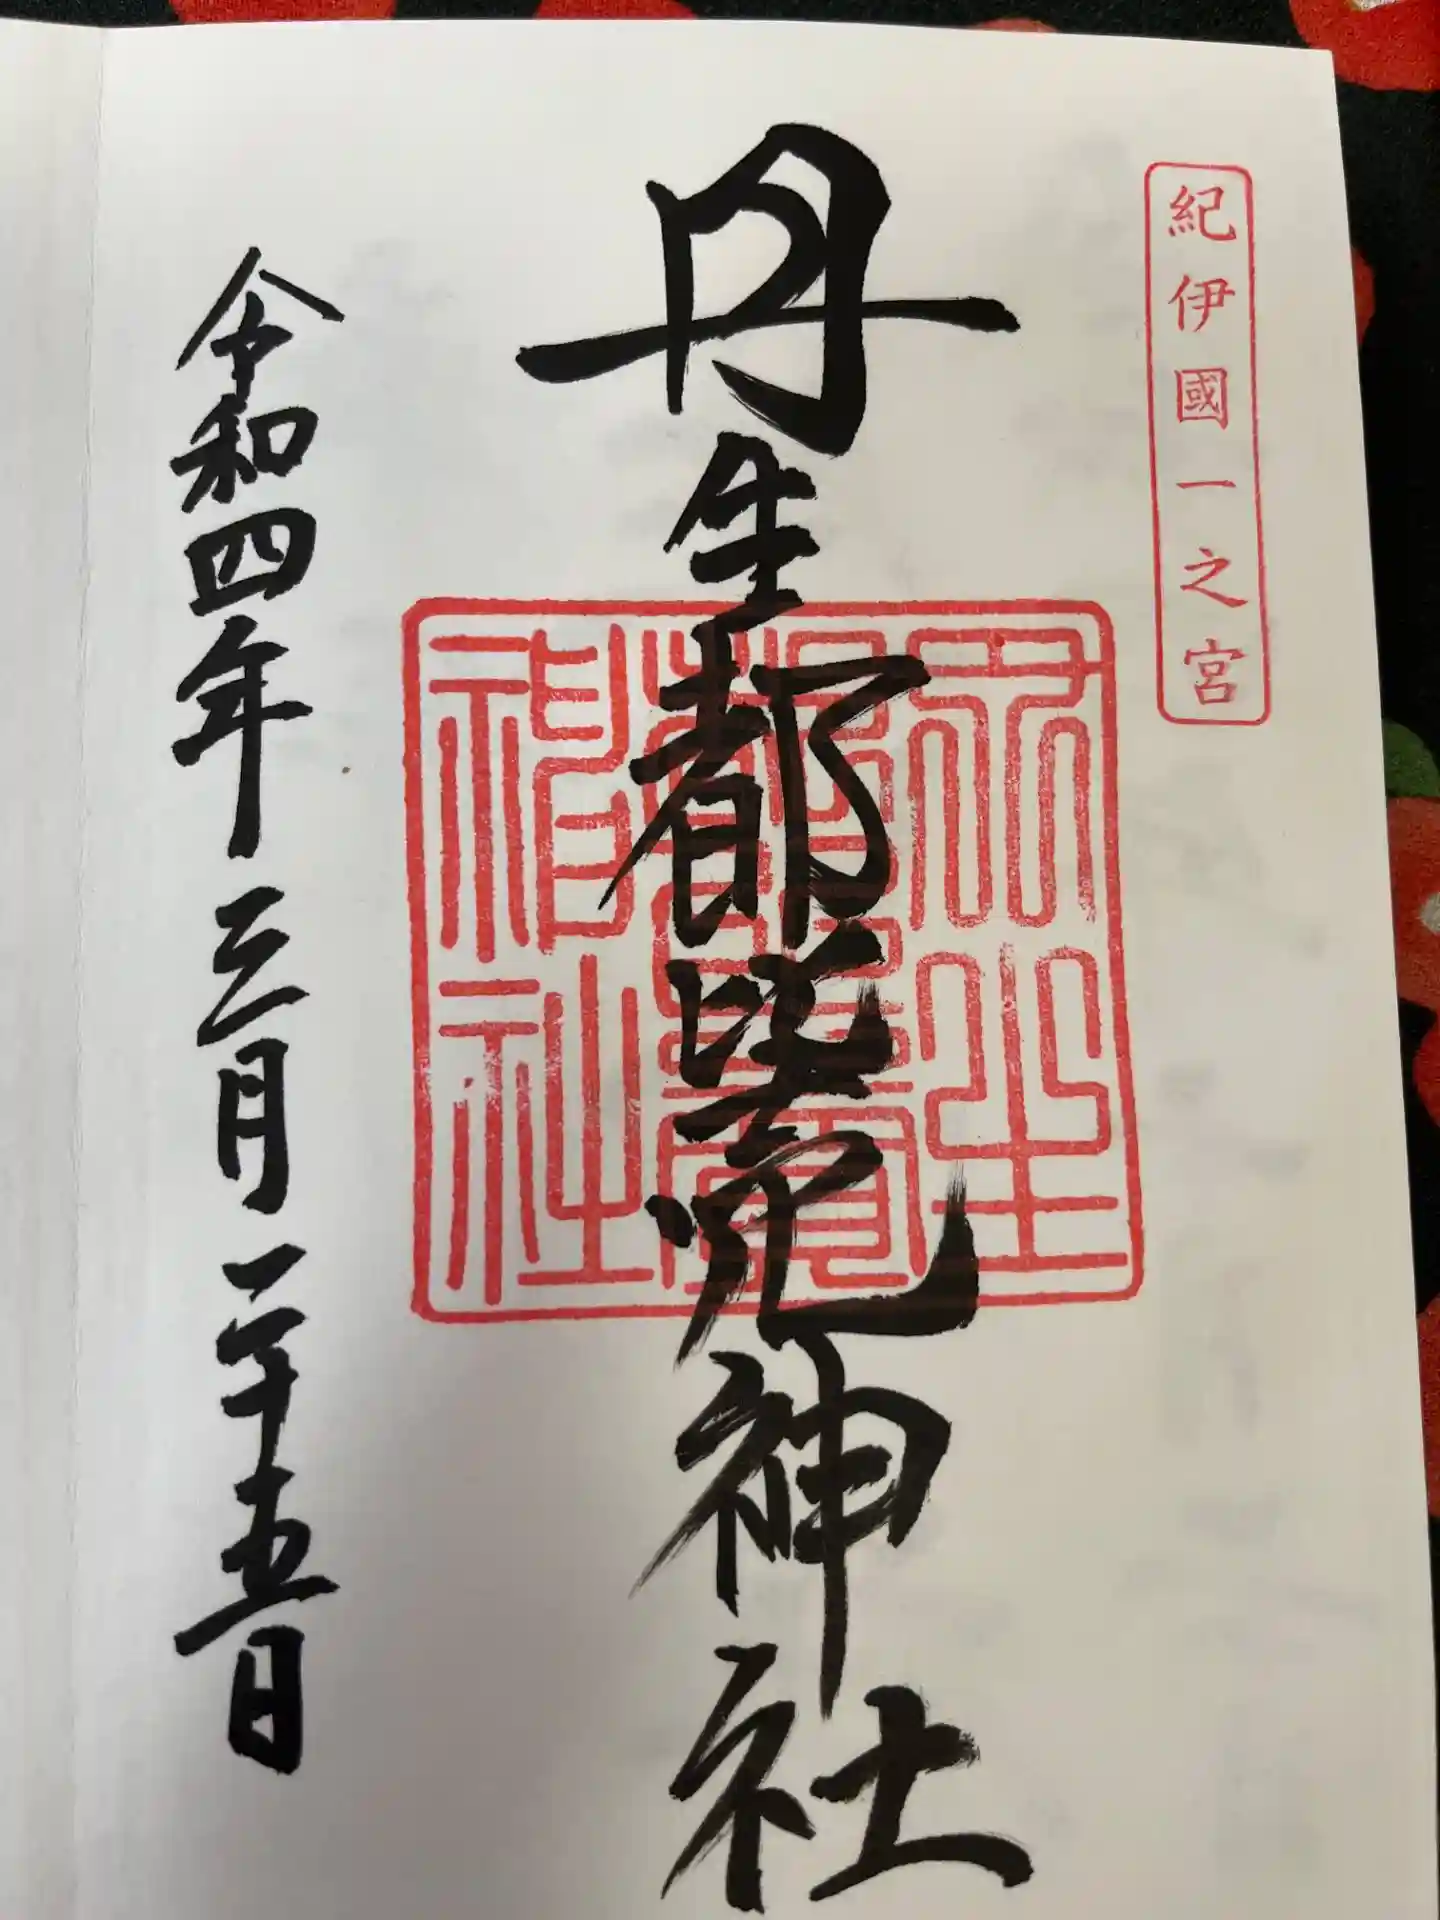 紀伊國一之宮
丹生都比売神社
丹生都比賣神社
令和四年三月二十五日